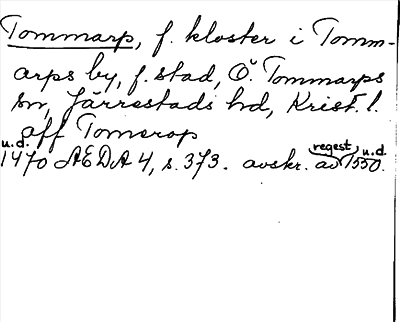 Tommarp, f. kloster i Tomm-
arps by, f. stad, Ö. Tommarps
sn, Järrestads hd, Krist. l.
aff Tomerop
u.d. 1470 ÆDA 4, s. 373. avskr. av regest 1550. u.d.